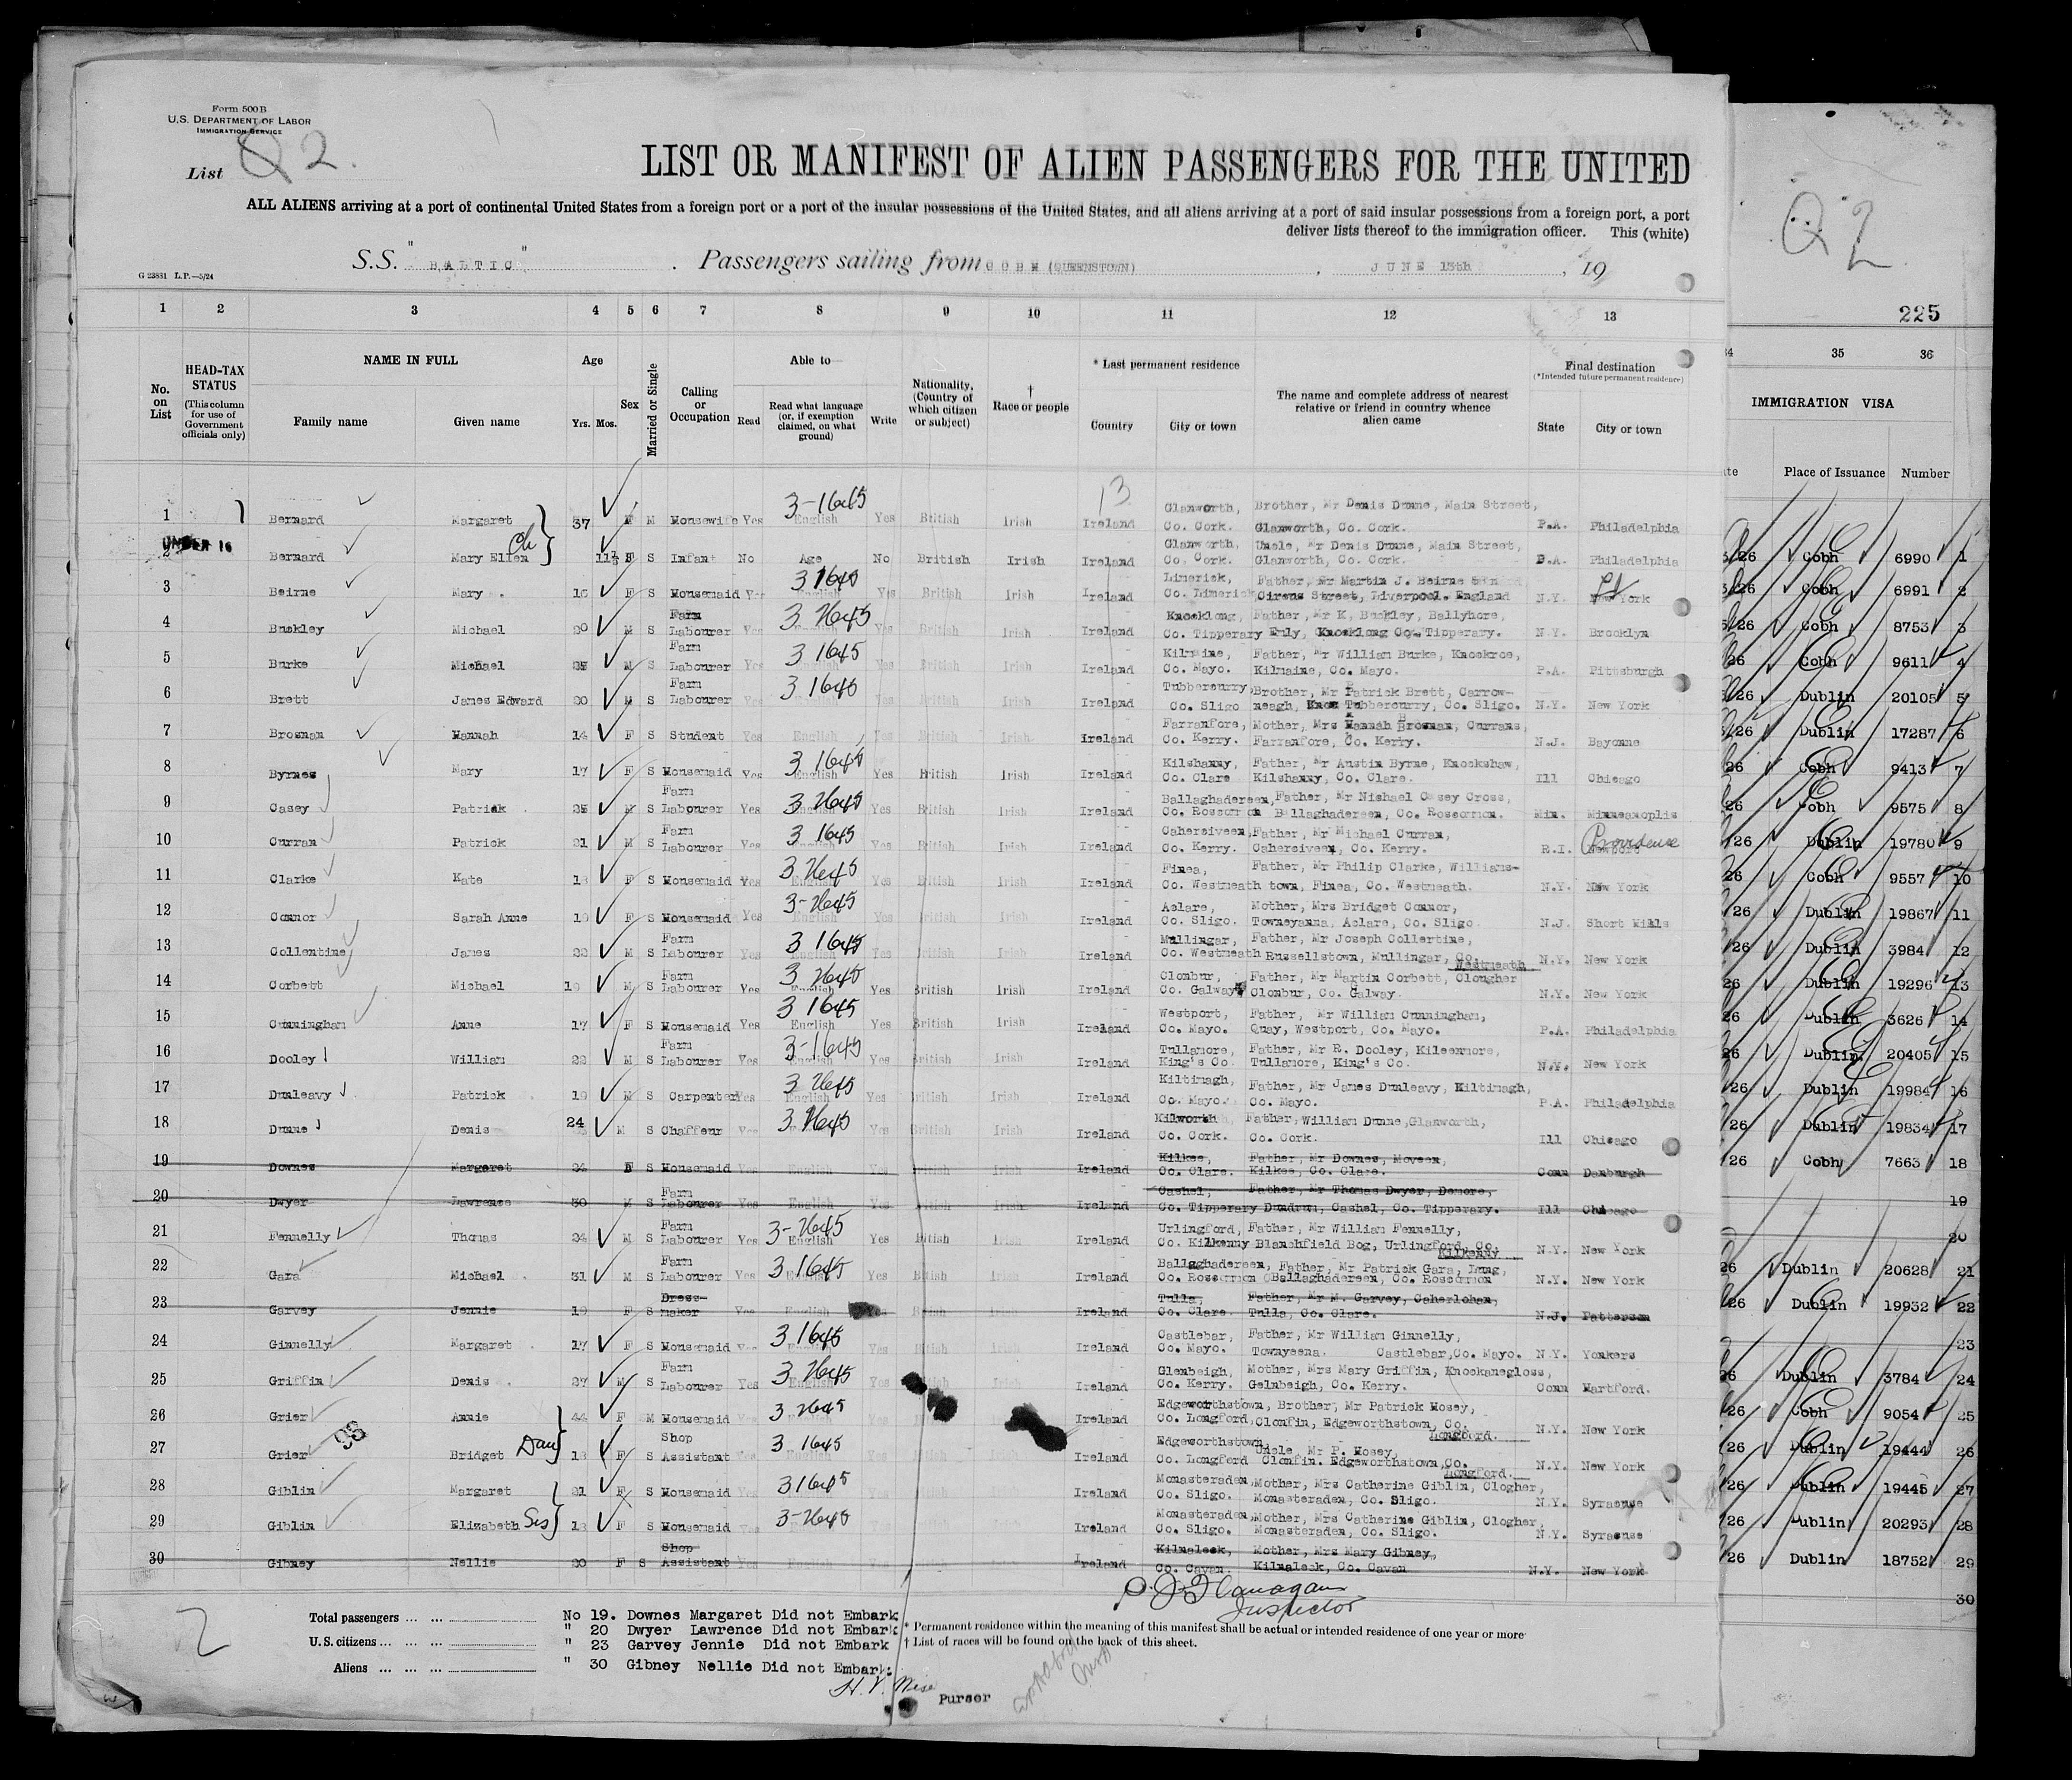 Form 500B
U.S. DEPARTMENT OF LABOR
IMMIGRATION SERVICE
List Q 2.
LIST OR MANIFEST OF ALIEN PASSENGERS FOR THE UNITED
ALL ALIENS arriving at a port of continental United States from a foreign port or a port of the insular possessions of the United States, and all aliens arriving at a port of said insular possessions from a foreign port, a port
deliver lists thereof to the immigration officer. This (white)
G 23831 L.P.—5/24
S.S. "BALTIC". Passengers sailing from COBH (QUEENSTOWN), JUNE 13th, 19
Q2
225
1 2 3 4 5 6 7 8 9 10 11 12 13
34 35 36
No. on List
HEAD-TAX STATUS (This column for use of Government officials only)
NAME IN FULL
Family name Given name
Age Yrs. Mos.
Sex
Married or Single
Calling or Occupation
Able to
Read Read what language (or, if exemption claimed, on what ground) Write
Nationality, (Country of which citizen or subject)
† Race or people
* Last permanent residence
Country City or town
The name and complete address of nearest relative or friend in country whence alien came
Final destination
(*Intended future permanent residence)
State City or town
IMMIGRATION VISA
Place of Issuance Number
13
1 Bernard Margaret 37 F M Housewife Yes English Yes British Irish Ireland Glanworth, Co. Cork. Brother, Mr Denis Dunne, Main Street, Glanworth, Co. Cork. P.A. Philadelphia
UNDER 16
2 Bernard Mary Ellen Ch 11½ F S Infant No Age No British Irish Ireland Glanworth, Co. Cork. Uncle, Mr Denis Dunne, Main Street, Glanworth, Co. Cork. P.A. Philadelphia
3 Beirne Mary F S Housemaid Yes English Yes British Irish Ireland Limerick, Co. Limerick Father, Mr Martin J. Beirne Cirens Street, Liverpool. England N.Y. New York
4 Buckley Michael M S Farm Labourer Yes Yes British Irish Ireland Knocklong, Co. Tipperary Father, Mr K. Buckley, Ballyhore, Emly, Knocklong Co. Tipperary. N.Y. Brooklyn
5 Burke Michael M S Farm Labourer Yes English Yes British Irish Ireland Kilmaine, Co. Mayo. Father, Mr William Burke, Knockroe, Kilmaine, Co. Mayo. P.A. Pittsburgh
6 Brett James Edward M S Farm Labourer Yes Yes British Irish Ireland Tubbercurry, Co. Sligo Brother, Mr Patrick Brett, Carrow-neagh, Tubbercurry, Co. Sligo. N.Y. New York
7 Brosnan Hannah 14 F S Student Yes English Yes British Irish Ireland Farranfore, Co. Kerry. Mother, Mrs Hannah Brosnan, Currans, Farranfore, Co. Kerry. N.J. Bayonne
8 Byrnes Mary 17 F S Housemaid Yes English Yes British Irish Ireland Kilshanny, Co. Clare Father, Mr Austin Byrne, Knockshaw, Kilshanny, Co. Clare. Ill Chicago
9 Casey Patrick M S Farm Labourer Yes English Yes British Irish Ireland Ballaghadereen, Co. Roscommon Father, Mr Michael Casey Cross, Ballaghadereen, Co. Roscommon. Min. Minneanoplis
10 Curran Patrick 21 M S Farm Labourer Yes English Yes British Irish Ireland Caherciveen, Co. Kerry. Father, Mr Michael Curran, Caherciveen, Co. Kerry. R.I. Providence
11 Clarke Kate F S Housemaid Yes English Yes British Irish Ireland Finea, Co. Westmeath Father, Mr Philip Clarke, Williams-town, Finea, Co. Westmeath. N.Y. New York
12 Connor Sarah Anne F S Housemaid Yes Yes British Irish Ireland Aclare, Co. Sligo. Mother, Mrs Bridget Connor, Towneyanna, Aclare, Co. Sligo. N.J. Short Hills
13 Collentine James M S Farm Labourer Yes English Yes British Irish Ireland Mullingar, Co. Westmeath Father, Mr Joseph Collertine, Russellstown, Mullingar, Co. Westmeath N.Y. New York
14 Corbett Michael 19 M S Farm Labourer Yes English Yes British Irish Ireland Clonbur, Co. Galway Father, Mr Martin Corbett, Clougher Clonbur, Co. Galway. N.Y. New York
15 Cunningham Anne 17 F S Housemaid Yes English Yes British Irish Ireland Westport, Co. Mayo. Father, Mr William Cunningham, Quay, Westport, Co. Mayo. P.A. Philadelphia
16 Dooley William M S Farm Labourer Yes English Yes British Irish Ireland Tullamore, King's Co. Father, Mr R. Dooley, Kileenmore, Tullamore, King's Co. N.Y. New York
17 Dunleavy Patrick 19 M S Carpenter Yes English Yes British Irish Ireland Kiltimagh, Co. Mayo. Father, Mr James Dunleavy, Kiltimagh, Co. Mayo. P.A. Philadelphia
18 Dunne Denis 24 M S Chaffeur Yes English Yes British Irish Ireland Kilworth, Co. Cork. Father, William Dunne, Glanworth, Co. Cork. Ill Chicago
19 Downes Margaret F S Housemaid Yes English Yes British Irish Ireland Kilkee, Co. Clare. Father, Mr Downes, Moveen, Kilkee, Co. Clare. Conn Danburgh
20 Dwyer Lawrence 30 M S Farm Labourer Yes English Yes British Irish Ireland Cashel, Co. Tipperary Father, Mr Thomas Dwyer, Demore, Dundrum, Cashel, Co. Tipperary. Ill Chicago
21 Fennelly Thomas M S Farm Labourer Yes English Yes British Irish Ireland Urlingford, Co. Kilkenny Father, Mr William Fennelly, Blanchfield Bog, Urlingford, Co. Kilkenny N.Y. New York
22 Gara Michael 31 M S Farm Labourer Yes English Yes British Irish Ireland Ballaghadereen, Co. Roscommon Father, Mr Patrick Gara, Lung, Ballaghadereen, Co. Roscommon N.Y. New York
23 Garvey Jennie 19 F S Dress-maker Yes English Yes British Irish Ireland Tulla, Co. Clare. Father, Mr M. Garvey, Caherlohan, Tulla, Co. Clare. N.J. Patterson
24 Ginnelly Margaret 17 F S Housemaid Yes English Yes British Irish Ireland Castlebar, Co. Mayo. Father, Mr William Ginnelly, Townyeena. Castlebar, Co. Mayo. N.Y. Yonkers
25 Griffin Denis 27 M S Farm Labourer Yes English Yes British Irish Ireland Glenbeigh, Co. Kerry. Mother, Mrs Mary Griffin, Knockanegloss, Gelnbeigh, Co. Kerry. Conn Hartford.
26 Grier Annie 44 F M Housemaid Yes Yes Irish Ireland Edgeworthstown, Co. Longford, Brother, Mr Patrick Hosey, Clonfin, Edgeworthstown, Co. Longford. N.Y. New York
98
27 Grier Bridget Dau F S Shop Assistant Yes English Yes British Irish Ireland Edgeworthstown Co. Longford Uncle, Mr P. Hosey, Clonfin. Edgeworthstown, Co. Longford. N.Y. New York
28 Giblin Margaret 21 F S Housemaid Yes Ireland Monasteraden, Co. Sligo. Mother, Mrs Catherine Giblin, Clogher, Monasteraden, Co. Sligo. N.Y. Syracuse
29 Giblin Elizabeth Sis F S Housemaid Ireland Monasteraden, Co. Sligo. Mother, Mrs Catherine Giblin, Clogher, Monasteraden, Co. Sligo. N.Y. Syracuse
30 Gibney Nellie 20 F S Shop Assistant Yes English Ireland Kilnaleck, Co. Cavan. Mother, Mrs Mary Gibney, Kilnaleck, Co. Cavan N.Y. New York
26 Cobh 6990 1
26 Cobh 6991 2
26 Cobh 8753 3
26 Cobh 9611 4
26 Dublin 20105 5
26 Dublin 17287 6
26 Cobh 9413 7
26 Cobh 9575 8
26 Dublin 19780 9
26 Cobh 9557 10
26 Dublin 19867 11
26 Dublin 3984 12
26 Dublin 19296 13
26 Dublin 3626 14
26 Dublin 20405 15
26 Dublin 19984 16
26 Dublin 19834 17
26 Cobh 7663 18
19
20
26 Dublin 20628 21
26 Dublin 19932 22
23
26 Dublin 3784 24
26 Cobh 9054 25
26 Dublin 19444 26
26 Dublin 19445 27
26 Dublin 20293 28
26 Dublin 18752 29
30
Flanagan
Inspector
2
Total passengers
U.S. citizens
Aliens
No 19. Downes Margaret Did not Embark
" 20 Dwyer Lawrence Did not Embark
" 23 Garvey Jennie Did not Embark
" 30 Gibney Nellie Did not Embark
* Permanent residence within the meaning of this manifest shall be actual or intended residence of one year or more
† List of races will be found on the back of this sheet.
Purser